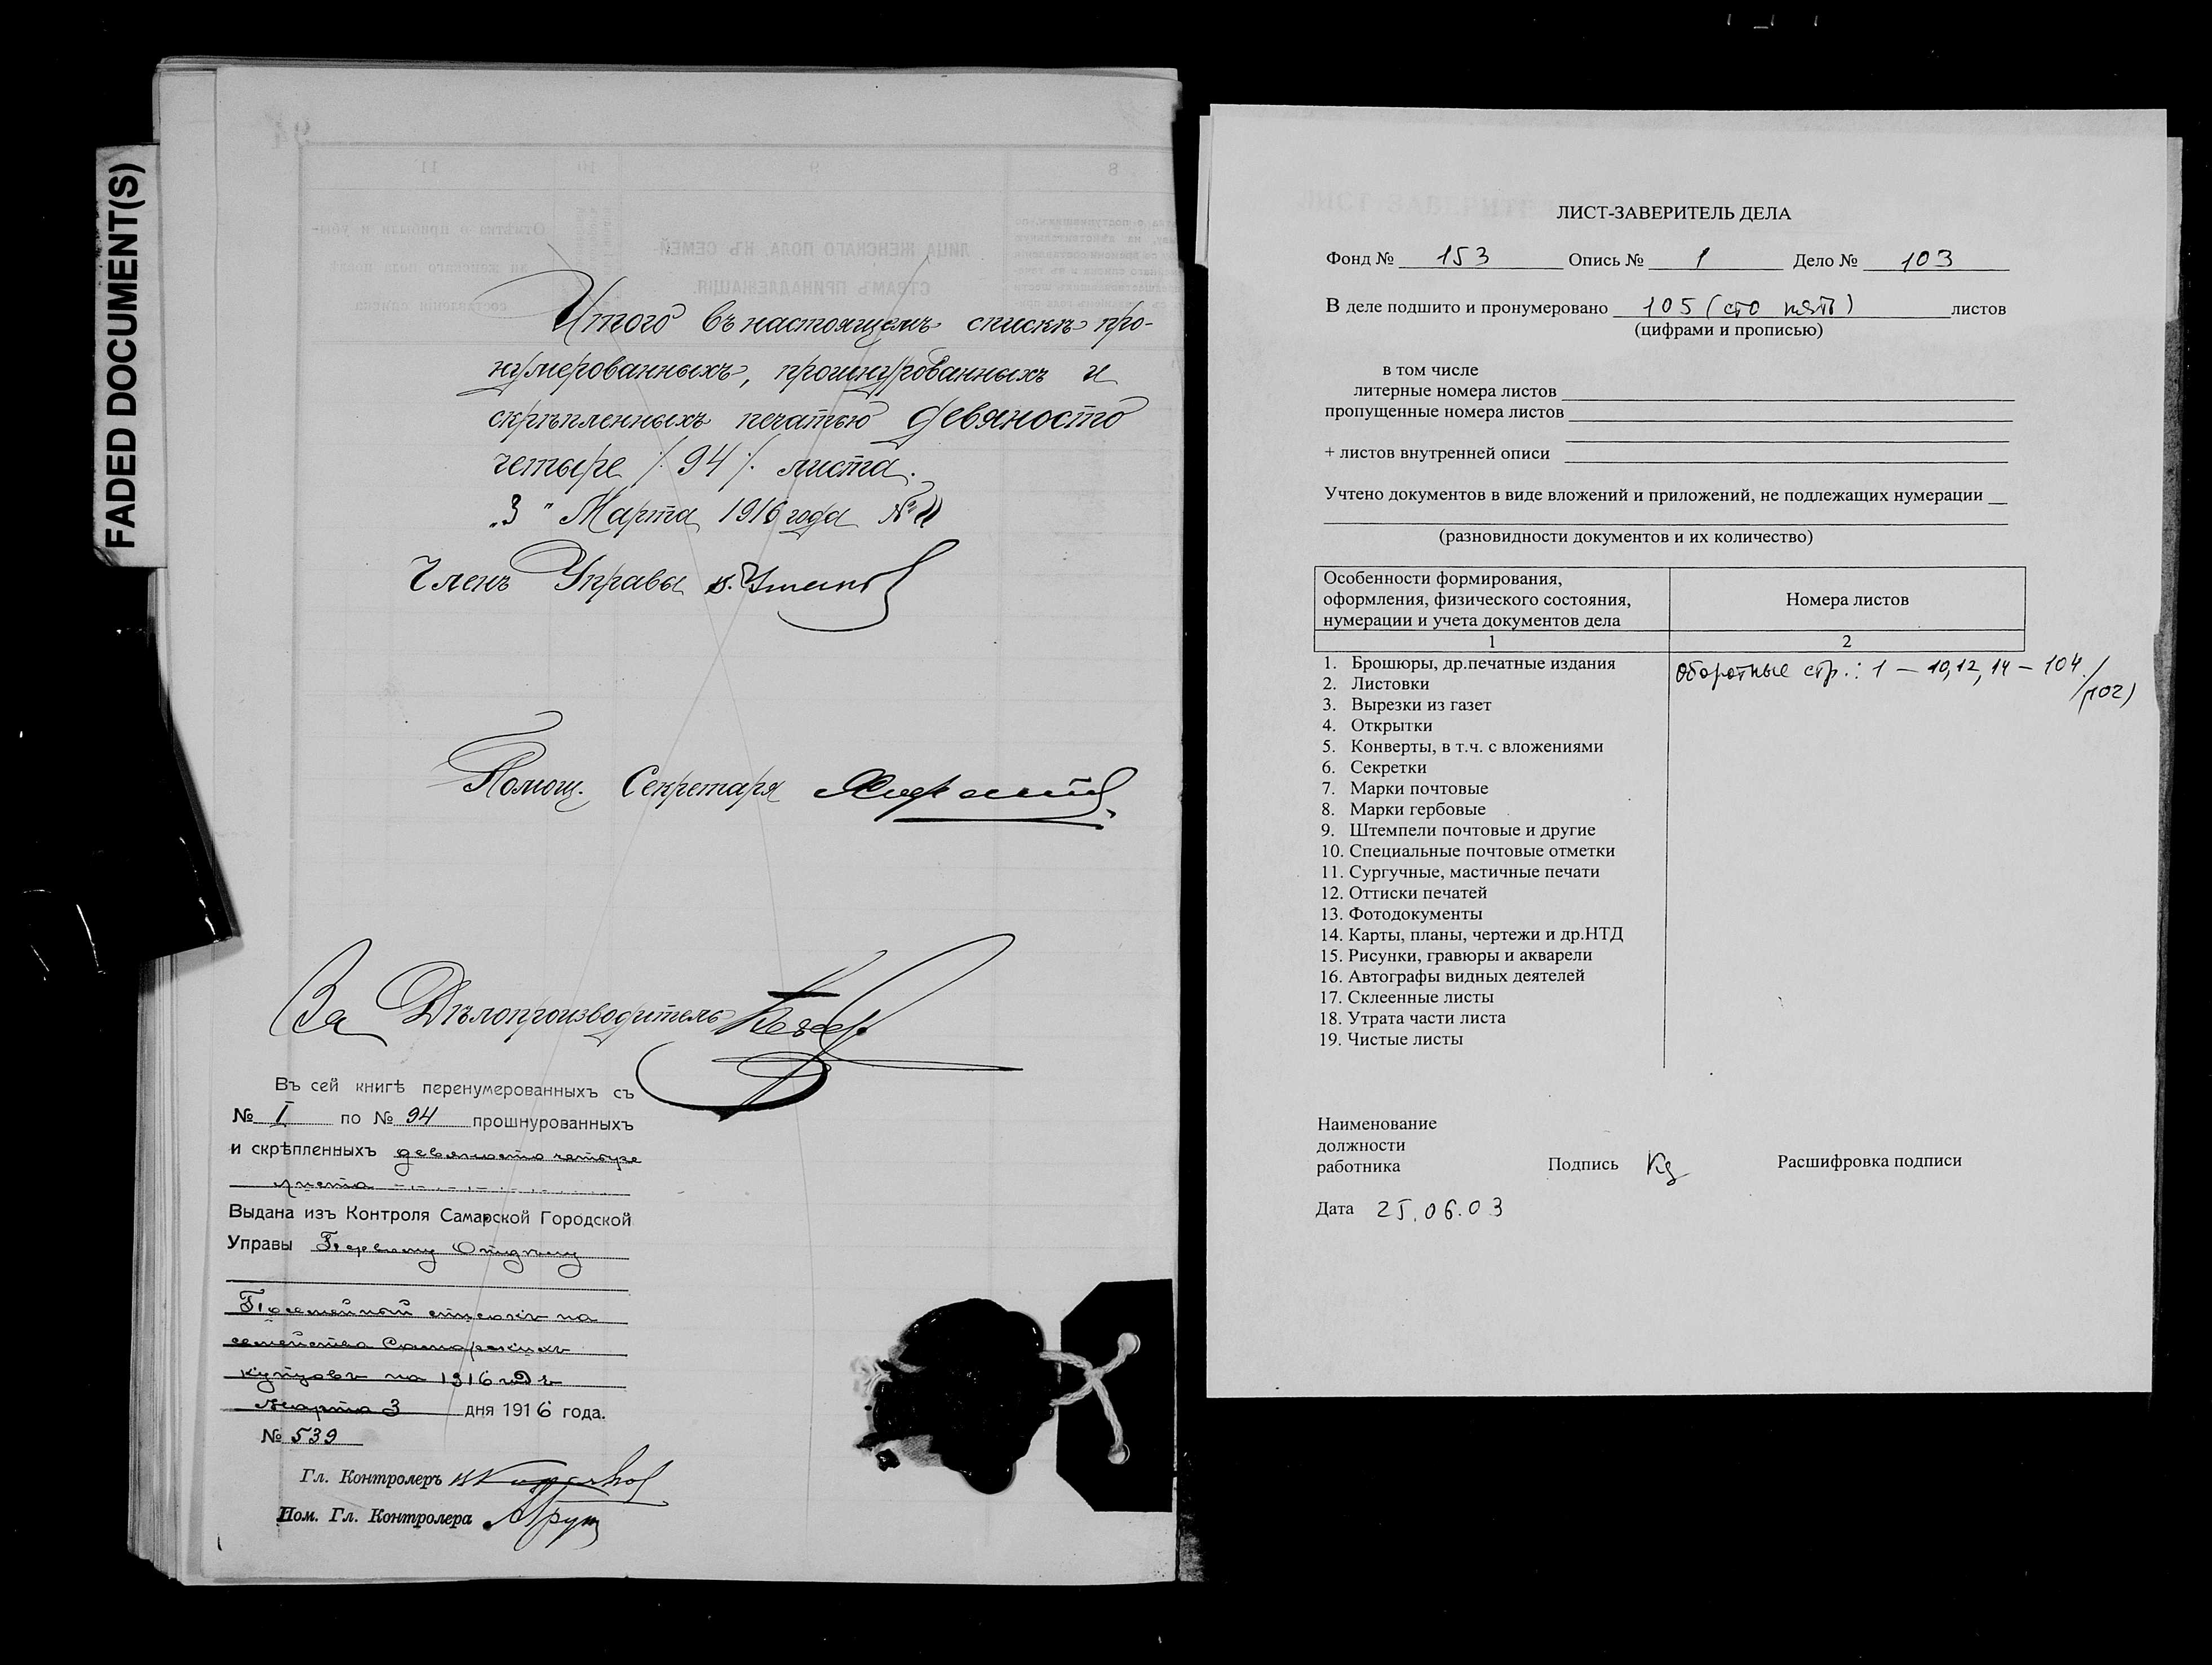 FADED DOCUMENT(S)
Итого въ настоящемъ спискѣ про-
нумерованныхъ, прошнурованныхъ и
скрѣпленныхъ печатью девяносто
четыре /. 94 /. листа.
„3" Марта 1916 года №
Членъ Управы
Помощ. Секретаря
За Дѣлопроизводитель
Въ сей книгѣ перенумерованныхъ съ
№ I по № 94 прошнурованныхъ
и скрѣпленныхъ девяносто четыре
листа
Выдана изъ Контроля Самарской Городской
Управы Первому Отдѣлу
Посемейный списокъ на
семейства Самарскихъ
купцовъ на 1916 годъ
Марта 3 дня 1916 года.
№ 539
Гл. Контролеръ
Пом. Гл. Контролера
ЛИСТ-ЗАВЕРИТЕЛЬ ДЕЛА
Фонд № 153 Опись № 1 Дело № 103
В деле подшито и пронумеровано 105 (сто пять) листов
(цифрами и прописью)
в том числе
литерные номера листов
пропущенные номера листов
+ листов внутренней описи
Учтено документов в виде вложений и приложений, не подлежащих нумерации
(разновидности документов и их количество)
Особенности формирования,
оформления, физического состояния,
нумерации и учета документов дела
Номера листов
1 2
1. Брошюры, др.печатные издания
Оборотные стр.: 1 – 10, 12, 14 – 104 /
/102)
2. Листовки
3. Вырезки из газет
4. Открытки
5. Конверты, в т.ч. с вложениями
6. Секретки
7. Марки почтовые
8. Марки гербовые
9. Штемпели почтовые и другие
10. Специальные почтовые отметки
11. Сургучные, мастичные печати
12. Оттиски печатей
13. Фотодокументы
14. Карты, планы, чертежи и др.НТД
15. Рисунки, гравюры и акварели
16. Автографы видных деятелей
17. Склеенные листы
18. Утрата части листа
19. Чистые листы
Наименование
должности
работника Подпись Расшифровка подписи
Дата 25.06.03